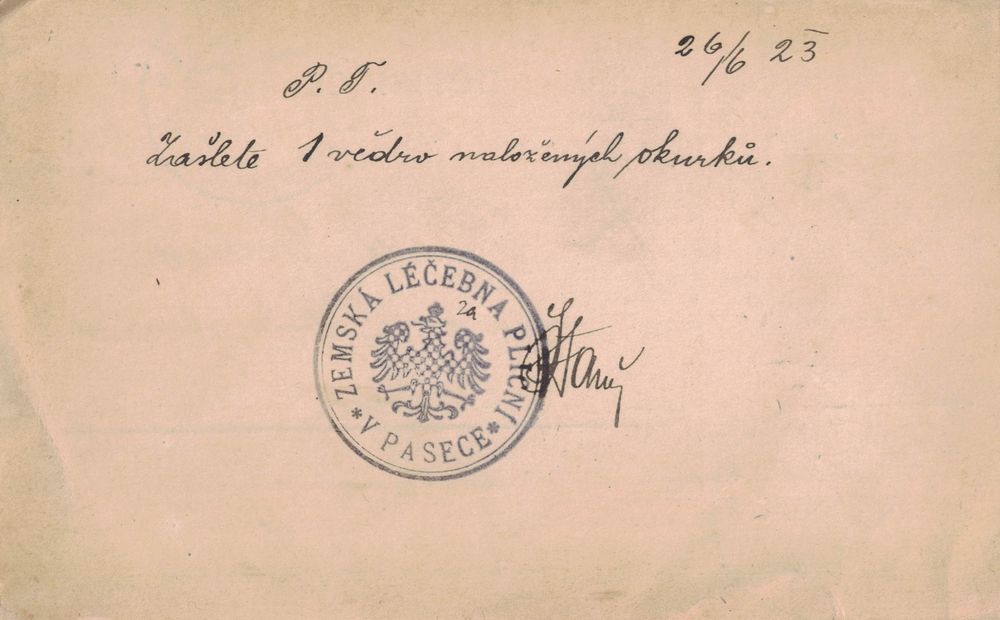 26/6 23
P. T.
Zašlete 1 vědro naložených okurků.
ZEMSKÁ LÉČEBNA PLICNÍ
* V PASECE *
za